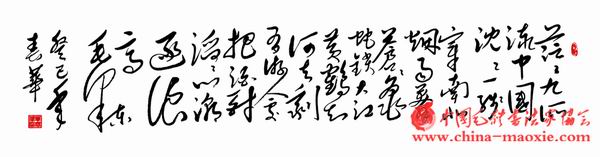 茫々九派
流中國
沈々一線
穿南北
烟雨莽
蒼々龜
蛇鎖大江
黄鶴知
何去剩
有游人處
把酒酹
滔々心潮
逐浪
高
毛泽东
癸巳年
春華
中国毛体书法家协会
www.china-maoxie.com